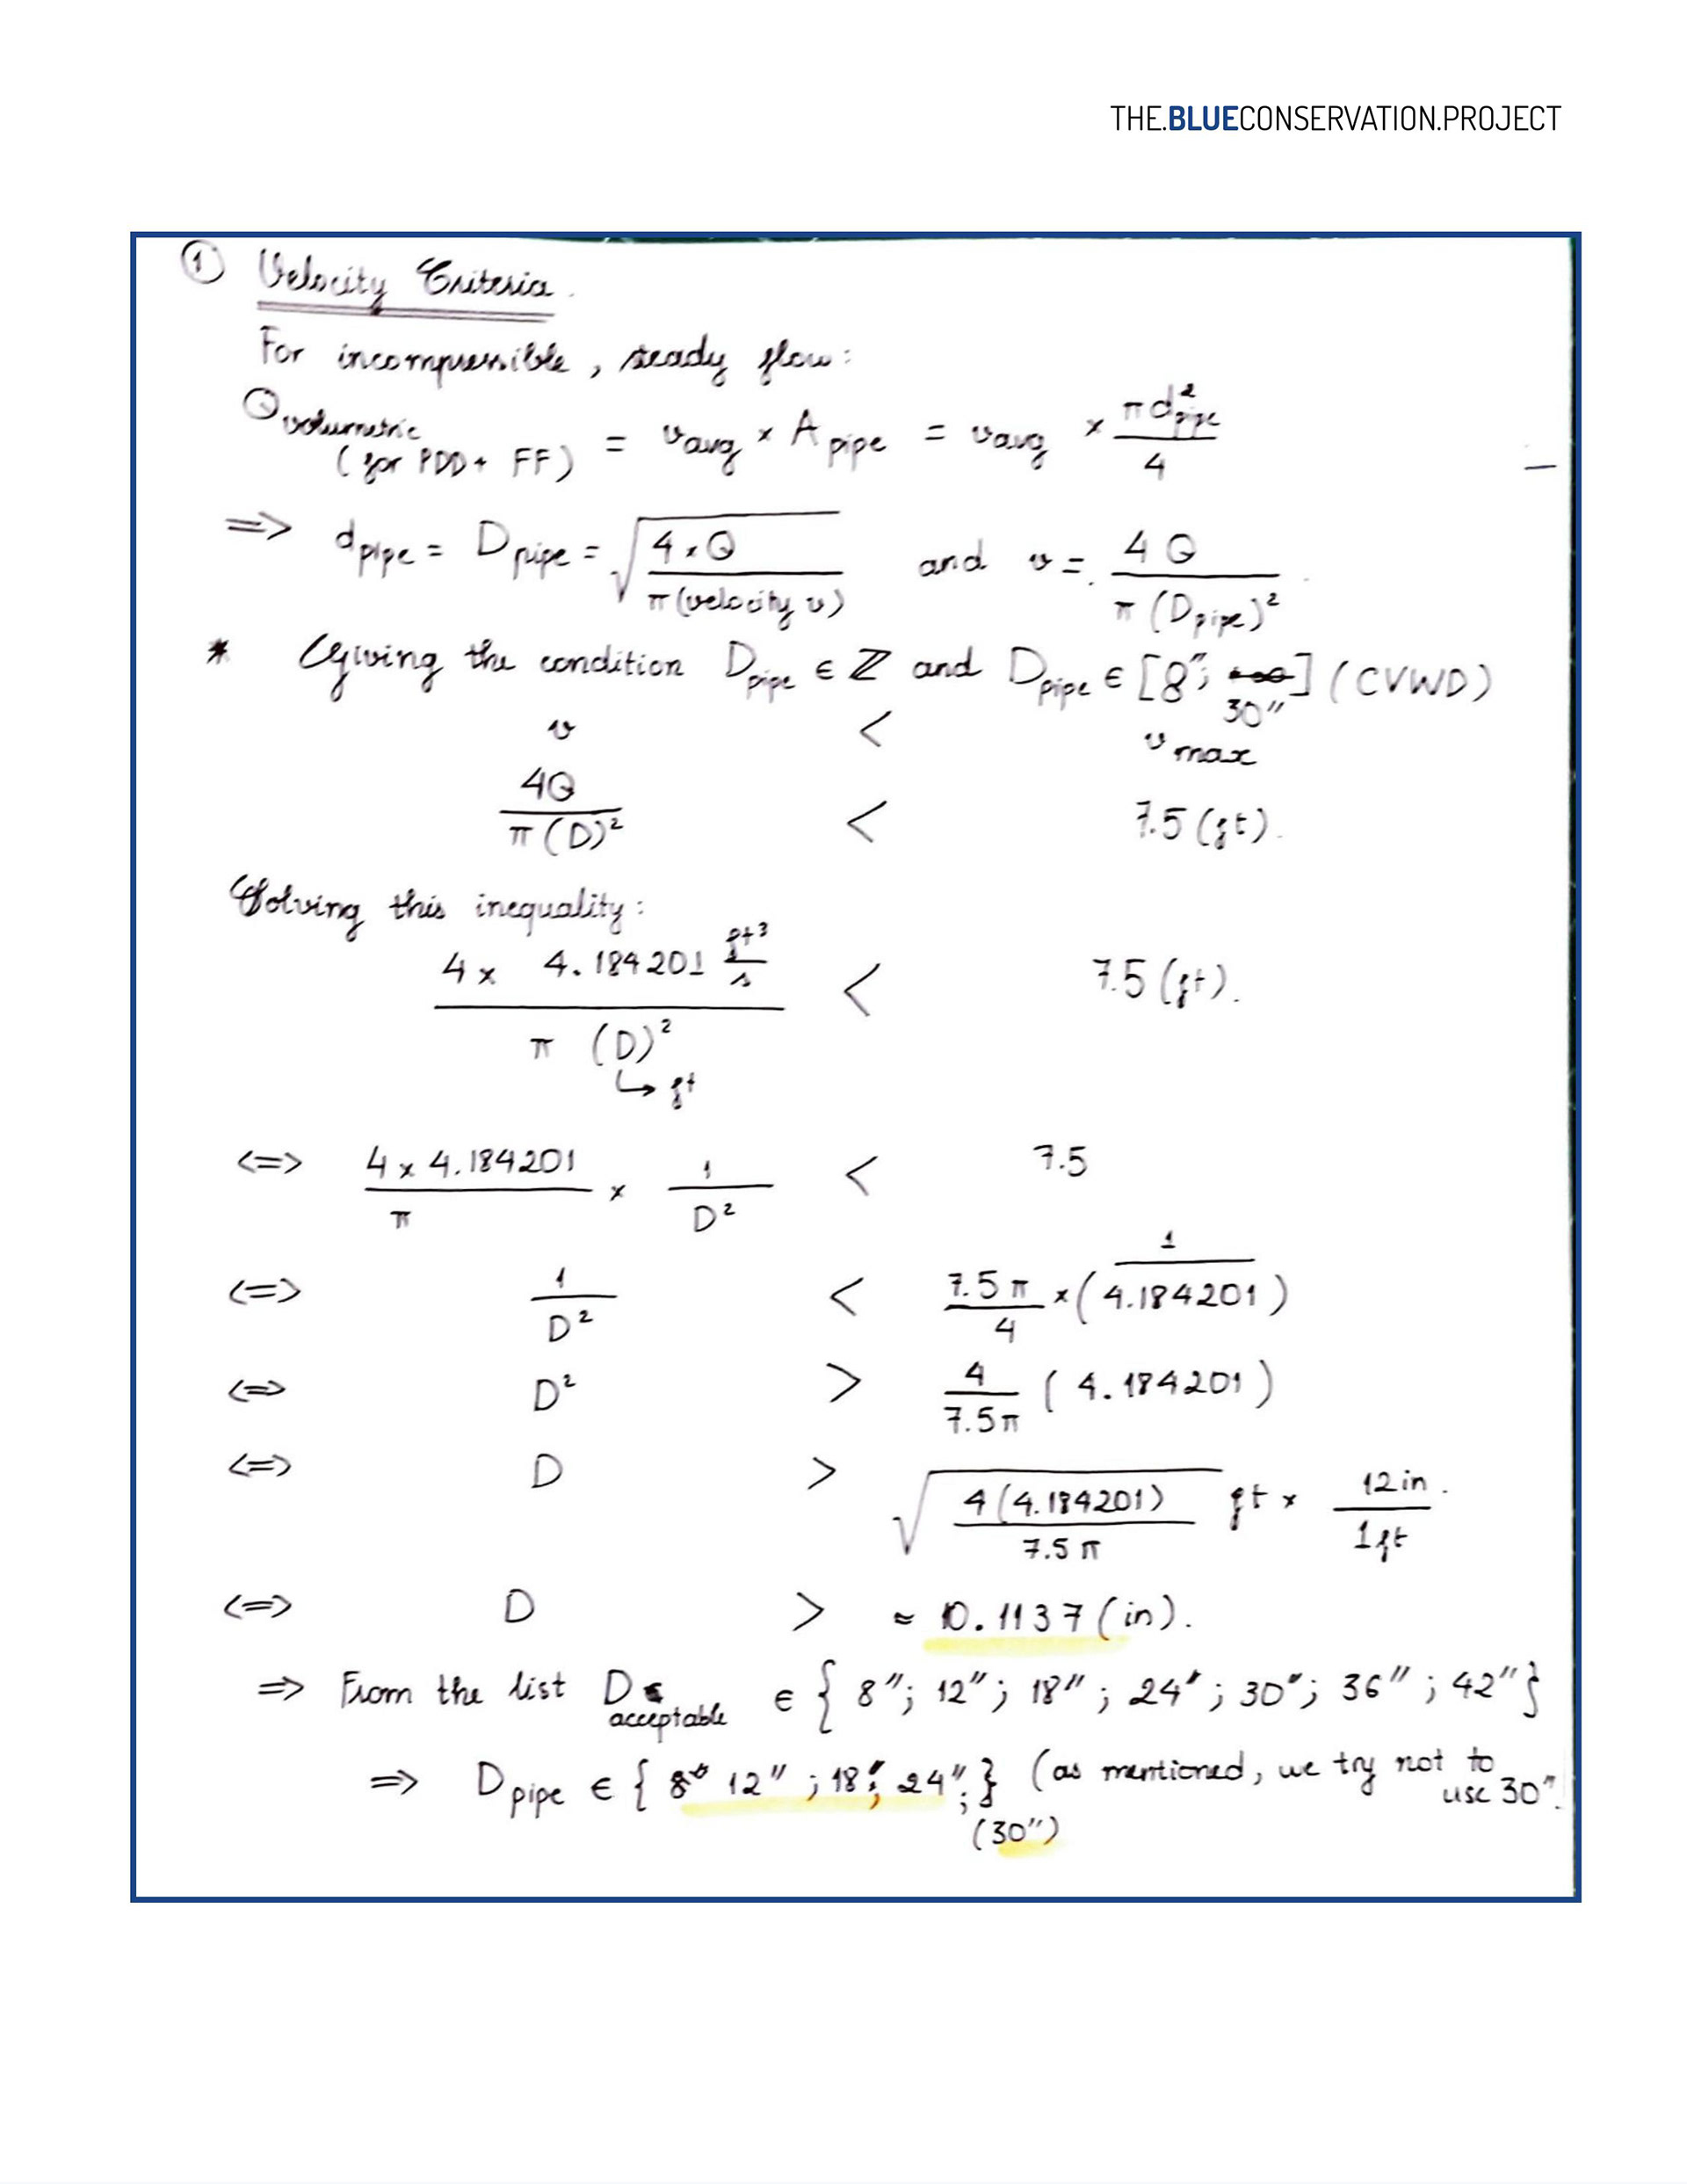 THE.BLUECONSERVATION.PROJECT
① Velocity Criteria.
For incompressible, steady flow:
Q volumetric (for PDD + FF) = v avg × A pipe = v avg × πd²pipe / 4
=> d pipe = D pipe = √(4 × Q / π(velocity v)) and v = 4Q / π(D pipe)²
* Giving the condition D pipe ∈ ℤ and D pipe ∈ [8"; 30"] (CVWD)
v < v max
4Q / π(D)² < 7.5 (ft).
Solving this inequality:
4 × 4.184201 ft³/s / π (D)² < 7.5 (ft).
↳ ft
<=> 4 × 4.184201 / π × 1 / D² < 7.5
<=> 1 / D² < 7.5π / 4 × (1 / 4.184201)
<=> D² > 4 / 7.5π (4.184201)
<=> D > √(4(4.184201) / 7.5π) ft × 12 in. / 1 ft
<=> D > ≈ 10.1137 (in).
=> From the list D acceptable ∈ { 8"; 12"; 18"; 24"; 30"; 36"; 42"}
=> D pipe ∈ { 12"; 18"; 24"; } (as mentioned, we try not to use 30".
(30")